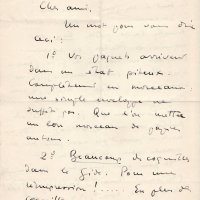 Cher ami,
Un mot pour vous dire
ceci :
1° Vos paquets arrivent
dans un état piteux.
Complètement en morceaux.
une simple enveloppe ne
suffit pas. Que l'on mette
un bon morceau de papier
autour.
2° Beaucoup de coquilles
dans le Gide. Pour une
réimpression !..... En plus de